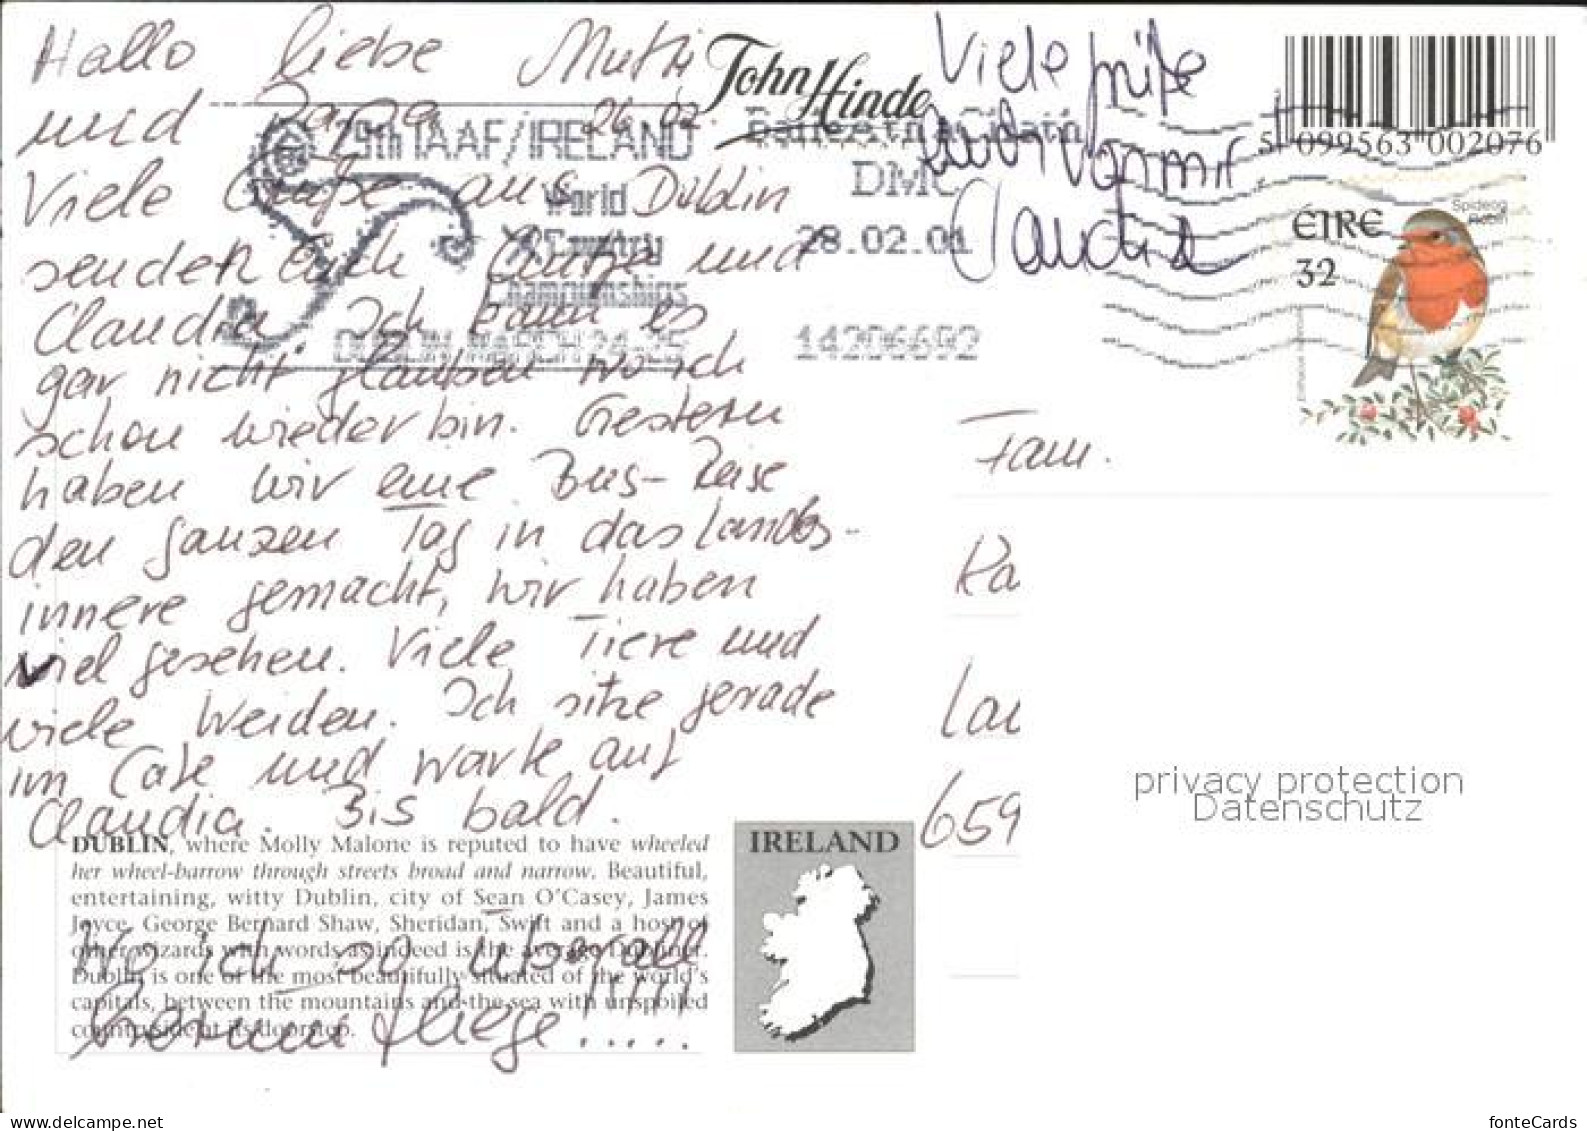 Hallo liebe Mutti
und Papa 26.02.
Viele Grüße aus Dublin
senden Euch und
Claudia. Ich kann es
gar nicht glauben wo ich
schon wieder bin. Gestern
haben wir eine Bus-Reise
den ganzen Tag in das Landes-
innere gemacht, wir haben
viel gesehen. Viele Tiere und
viele Weiden. Ich sitze gerade
im Cafe und warte auf
Claudia. Bis bald.
Wo ich so überall
herum fliege!.....
John Hinde
Viele Grüße
auch von mir
Claudia
29th IAAF/IRELAND
World
X Country
Championships
DUBLIN MARCH 24-25
Baile Átha Cliath
DMC
28.02.01
14206692
5 099563 002076
Spideog
Robin
ÉIRE
32
Fam.
Ra
Lau
659
privacy protection
Datenschutz
DUBLIN, where Molly Malone is reputed to have wheeled
her wheel-barrow through streets broad and narrow. Beautiful,
entertaining, witty Dublin, city of Sean O'Casey, James
Joyce, George Bernard Shaw, Sheridan, Swift and a host of
other wizards with words as indeed is the average Dubliner.
Dublin is one of the most beautifully situated of the world's
capitals, between the mountains and the sea with unspoiled
countryside at its doorstep.
IRELAND
fonteCards